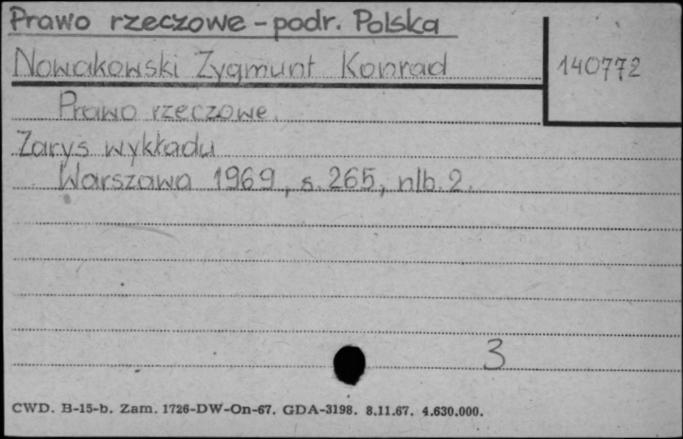 Prawo rzeczowe - podr. Polska
Nowakowski Zygmunt Konrad
140772
Prawo rzeczowe.
Zarys wykładu
Warszawa 1969, s. 265, nlb. 2.
3
CWD. B-15-b. Zam. 1726-DW-On-67. GDA-3198. 8.11.67. 4.630.000.